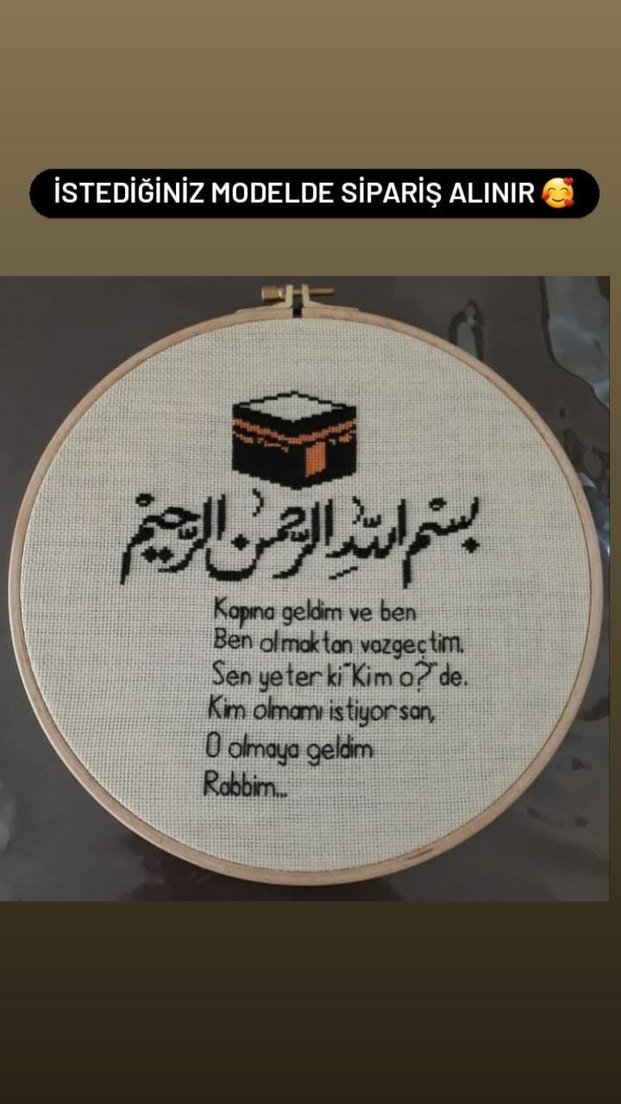 İSTEDİĞİNİZ MODELDE SİPARİŞ ALINIR 🥰
بِسْمِ اللّٰهِ الرَّحْمٰنِ الرَّحِيْمِ
Kapına geldim ve ben
Ben olmaktan vazgeçtim.
Sen yeter ki "Kim o?" de.
Kim olmamı istiyorsan,
O olmaya geldim
Rabbim...